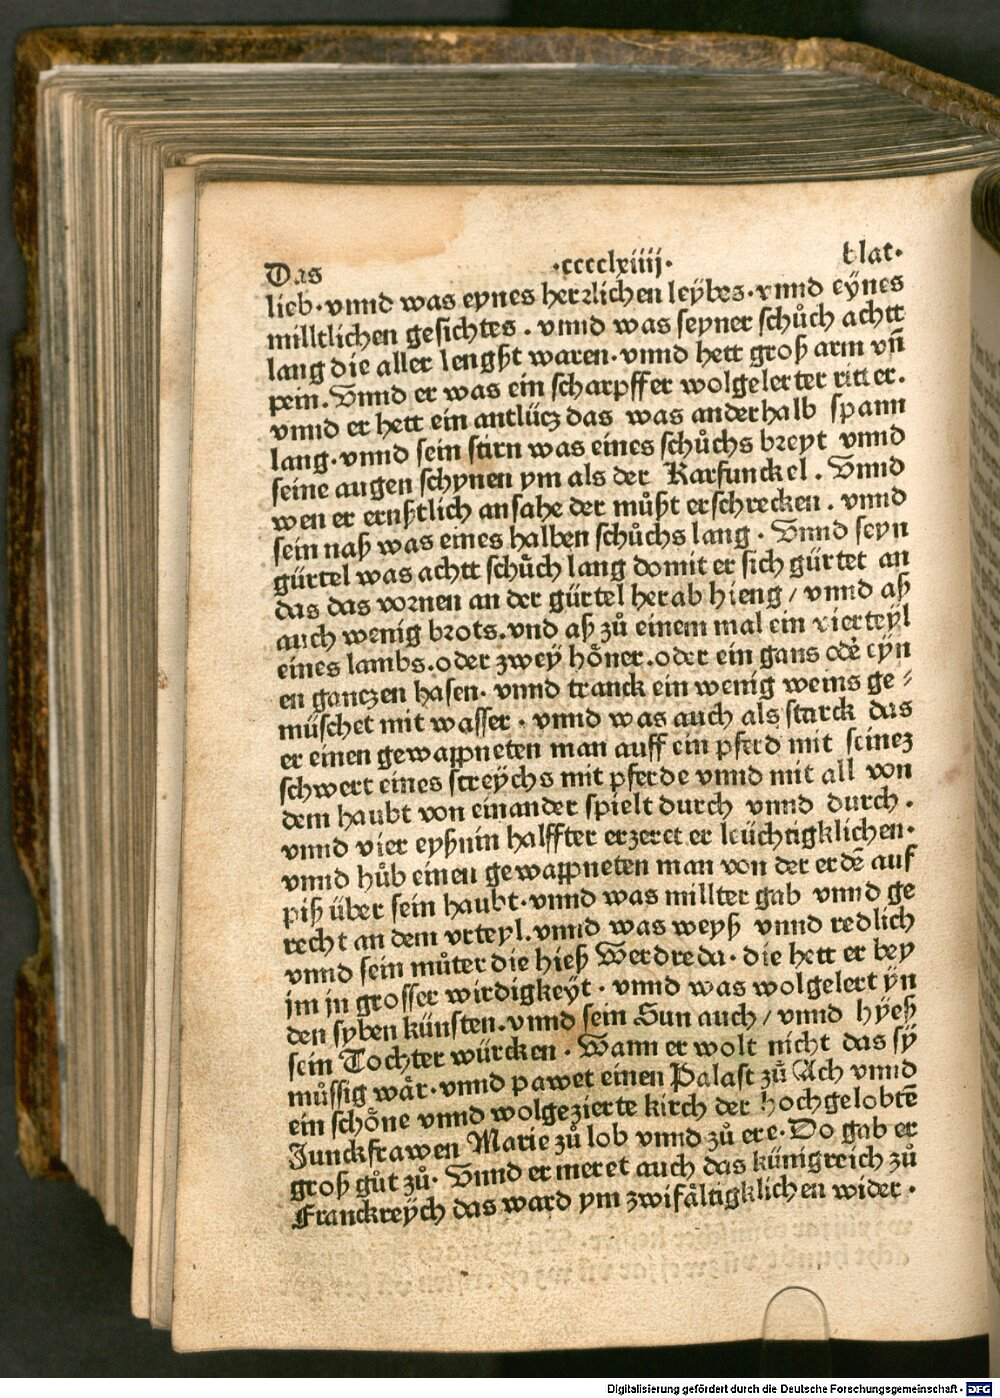 Das ·cccclxiiij· blat·
lieb·vnnd was eynes herꝛlichen leybes·vnnd eÿnes
milltlichen gesichtes . vnnd was seyner schůch achtt
lang die aller lenghst waren·vnnd hett groß arm vn̄
pein. Vnnd er was ein scharpffer wolgelerter ritter.
vnnd er hett ein antlücz das was anderhalb spann
lang·vnnd sein stirn was eines schůchs breyt vnnd
seine augen schynen ym als der Karfunckel . Vnnd
wen er ernstlich ansahe der můßt erschrecken . vnnd
sein naß was eines halben schůchs lang · Vnnd seyn
gürtel was achtt schůch lang domit er sich gürtet an
das das voꝛnen an der gürtel herab hieng / vnnd aß
auch wenig bꝛots.vnd aß zů einem mal ein vierteyl
eines lambs.oder zweÿ hŏner.oder ein gans odė eÿn
en ganczen hasen· vnnd tranck ein wenig weins ge⸗
müschet mit wasser · vnnd was auch als starck das
er einen gewappneten man auff ein pferd mit seinez
schwert eines streÿchs mit pferde vnnd mit all von
dem haubt von einander spielt durch vnnd durch .
vnnd vier eyßnin halffter erzeret er leüchtigklichen·
vnnd hůb einen gewappneten man von der erdē auf
piß über sein haubt·vnnd was millter gab vnnd ge
recht an dem vrteyl.vnnd was weyß vnnd redlich
vnnd sein můter die hieß Werdreda· die hett er bey
jm in grosser wirdigkeÿt · vnnd was wolgelert ÿn
den syben künsten.vnnd sein Sun auch / vnnd hÿeß
sein Tochter würcken · Wann er wolt nicht das sÿ
můssig wår·vnnd pawet einen Palast zů Ach vnnd
ein schŏne vnnd wolgezierte kirch der hochgelobtē
Junckfrawen Marie zů lob vnnd zů ere·Do gab er
groß gůt zů· Vnnd er meret auch das künigreich zů
Franckreÿch das ward ym zwifåltigklichen wider·
Digitalisierung gefördert durch die Deutsche Forschungsgemeinschaft - DFG